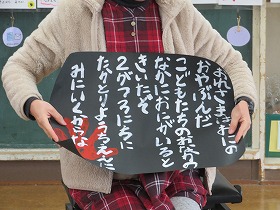 おれさまはおにの
おやぶんだ
こどもたちのおなかの
なかにおにがいると
きいたぞ
2がつ3にちに
たかとりようちえんに
みにいくからな